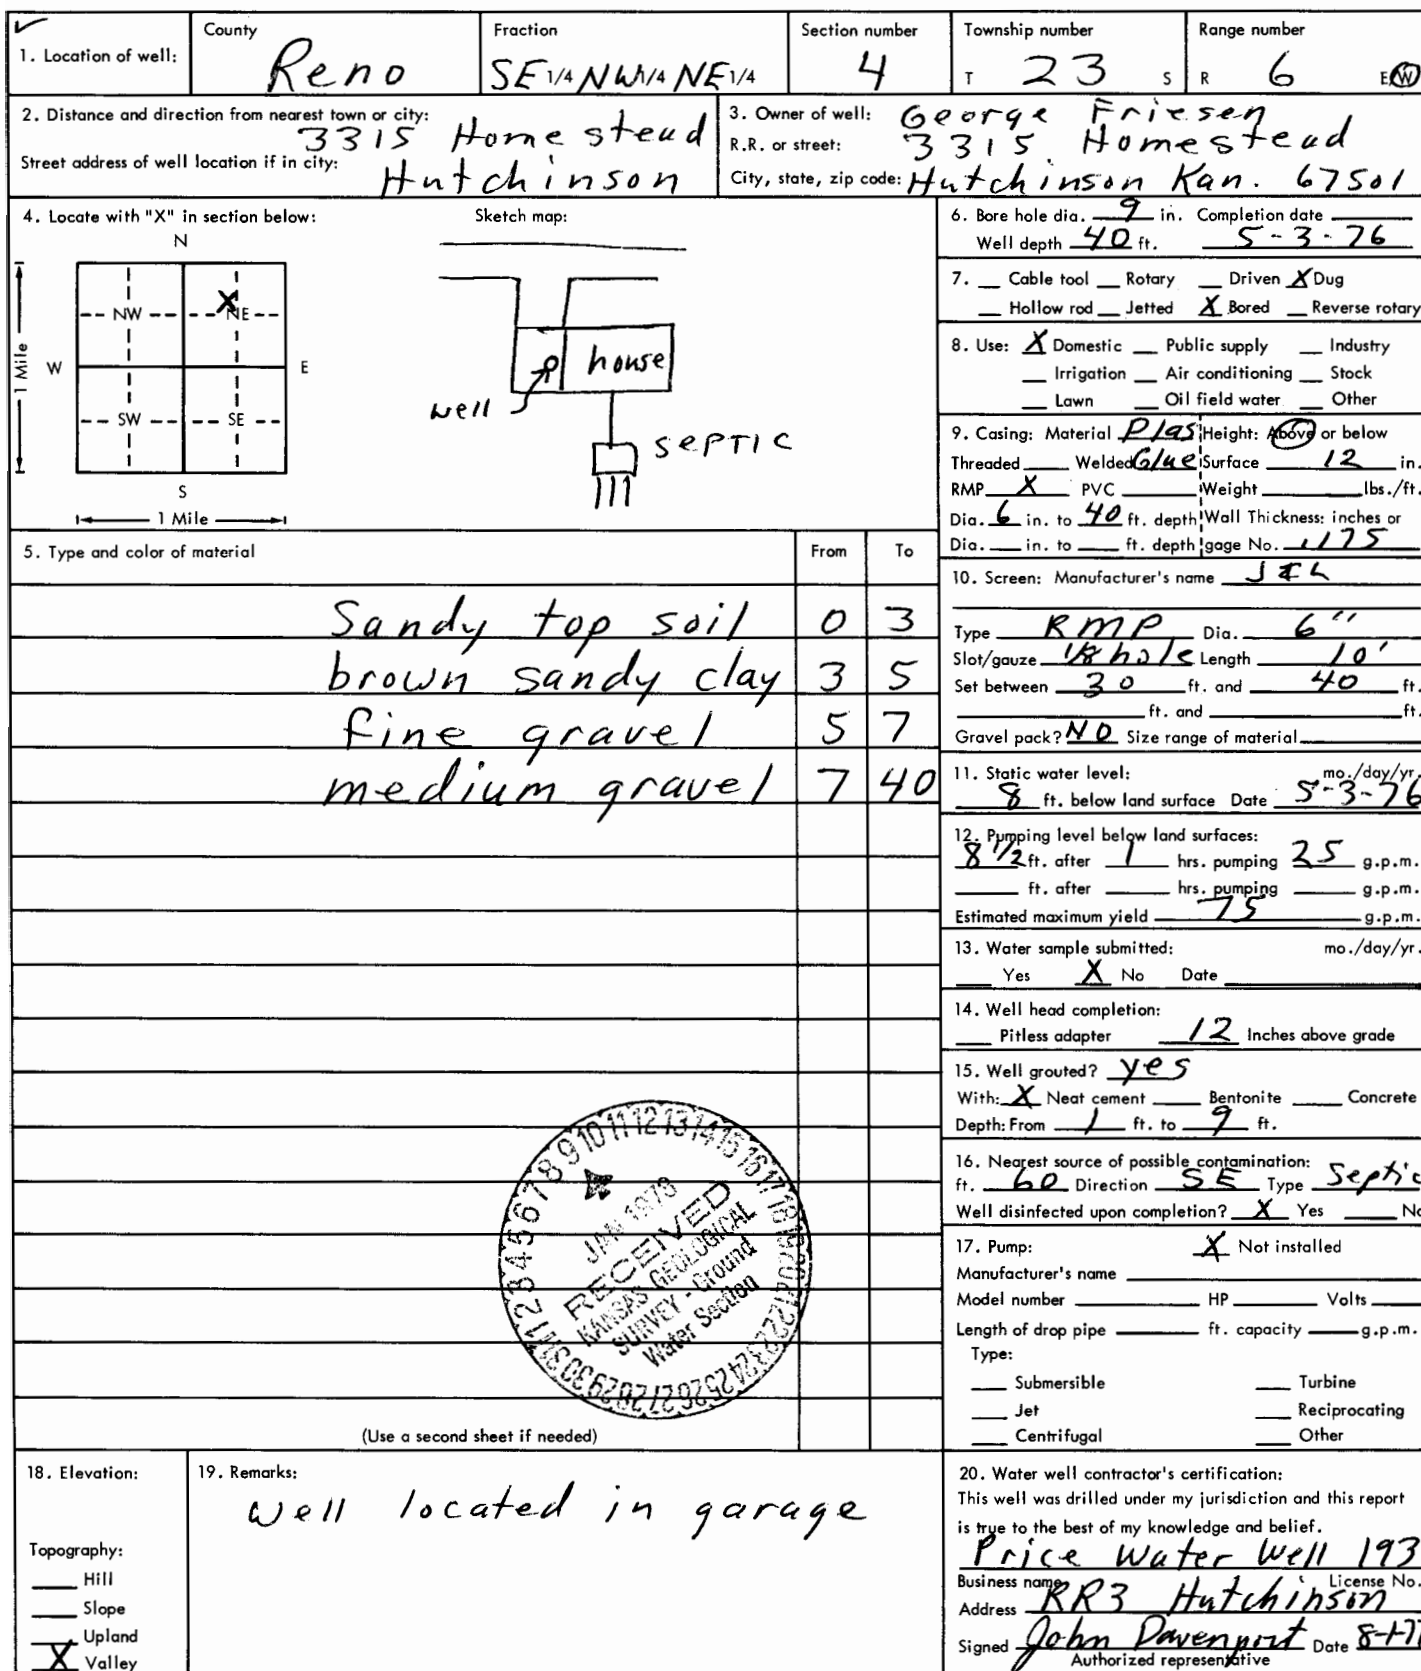 ✓ County Fraction Section number Township number Range number
1. Location of well: Reno SE 1/4 NW 1/4 NE 1/4 4 T 23 S R 6 E W
2. Distance and direction from nearest town or city:
3315 Homestead
Street address of well location if in city:
Hutchinson
3. Owner of well: George Friesen
R.R. or street: 3315 Homestead
City, state, zip code: Hutchinson Kan. 67501
4. Locate with "X" in section below: Sketch map:
N
X
NW NE
W E
1 Mile
SW SE
S
1 Mile
house
well
SEPTIC
5. Type and color of material From To
Sandy top soil 0 3
brown sandy clay 3 5
fine gravel 5 7
medium gravel 7 40
1 2 3 4 5 6 7 8 9 10 11 12 13 14 15 16 17 18 19 20 21 22 23 24 25 26 27 28 29 30 31
JAN 1978
RECEIVED
KANSAS GEOLOGICAL
SURVEY - Ground
Water Section
(Use a second sheet if needed)
6. Bore hole dia. 9 in. Completion date
Well depth 40 ft. 5-3-76
7. __ Cable tool __ Rotary __ Driven X Dug
__ Hollow rod __ Jetted X Bored __ Reverse rotary
8. Use: X Domestic __ Public supply __ Industry
__ Irrigation __ Air conditioning __ Stock
__ Lawn __ Oil field water __ Other
9. Casing: Material Plas Height: Above or below
Threaded ____ Welded Glue Surface 12 in.
RMP X PVC ____ Weight ____ lbs./ft.
Dia. 6 in. to 40 ft. depth Wall Thickness: inches or
Dia. __ in. to __ ft. depth gage No. .175
10. Screen: Manufacturer's name
Type RMP Dia. 6"
Slot/gauze 1/8 hole Length 10'
Set between 30 ft. and 40 ft.
____ ft. and ____ ft.
Gravel pack? NO Size range of material
11. Static water level: mo./day/yr.
8 ft. below land surface Date 5-3-76
12. Pumping level below land surfaces:
8 1/2 ft. after 1 hrs. pumping 25 g.p.m.
____ ft. after ____ hrs. pumping ____ g.p.m.
Estimated maximum yield 75 g.p.m.
13. Water sample submitted: mo./day/yr.
__ Yes X No Date
14. Well head completion:
__ Pitless adapter 12 Inches above grade
15. Well grouted? yes
With: X Neat cement ____ Bentonite ____ Concrete
Depth: From 1 ft. to 9 ft.
16. Nearest source of possible contamination:
ft. 60 Direction SE Type Septic
Well disinfected upon completion? X Yes ____ No
17. Pump: X Not installed
Manufacturer's name
Model number ____ HP ____ Volts ____
Length of drop pipe ____ ft. capacity ____ g.p.m.
Type:
__ Submersible __ Turbine
__ Jet __ Reciprocating
__ Centrifugal __ Other
18. Elevation:
Topography:
__ Hill
__ Slope
__ Upland
X Valley
19. Remarks:
well located in garage
20. Water well contractor's certification:
This well was drilled under my jurisdiction and this report
is true to the best of my knowledge and belief.
Price Water Well 193
Business name License No.
Address RR3 Hutchinson
Signed John Davenport Date 8-1-77
Authorized representative